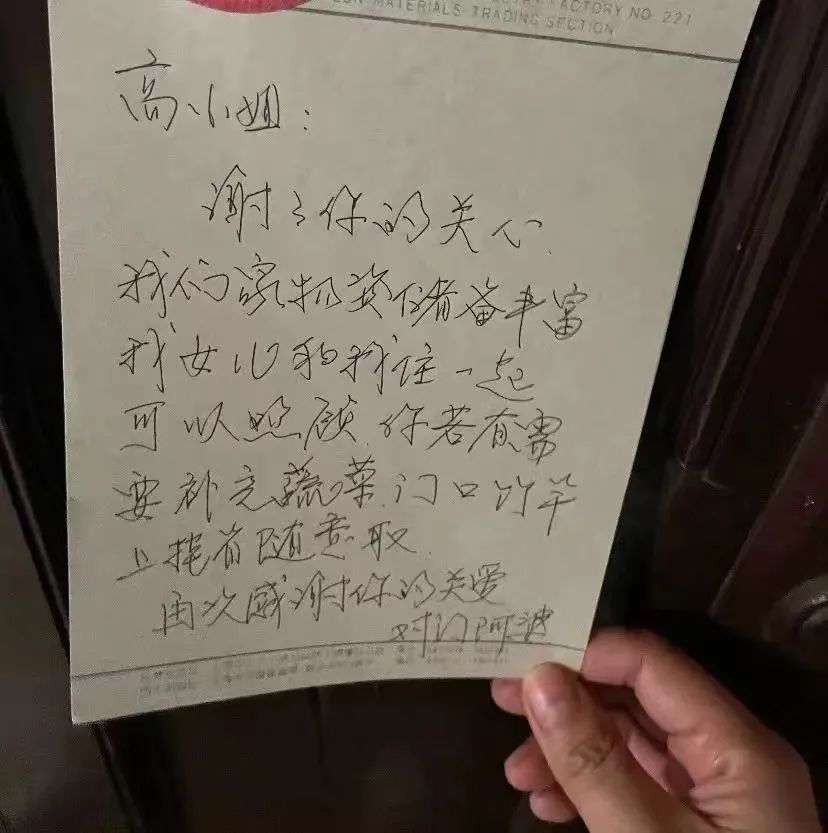 FACTORY NO 221
MATERIALS TRADING SECTION
高小姐：
谢々你的关心.
我们家物资储备丰富
我女儿和我住一起
可以照顾.你若有需
要补充蔬菜.门口竹竿
上挂有随意取.
再次感谢你的关爱
对门阿婆